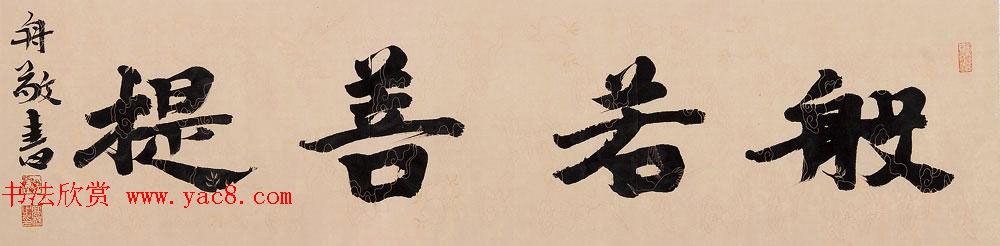 般若善提
舟敬書
书法欣赏 www.yac8.com